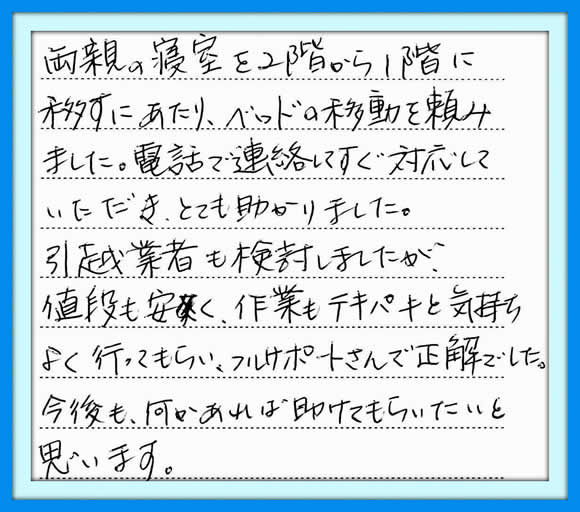 両親の寝室を2階から1階に
移すにあたり、ベッドの移動を頼み
ました。電話で連絡してすぐ対応して
いただき、とても助かりました。
引越業者も検討しましたが、
値段も安く、作業もテキパキと気持ち
よく行ってもらい、フルサポートさんで正解でした。
今後も、何かあれば助けてもらいたいと
思います。